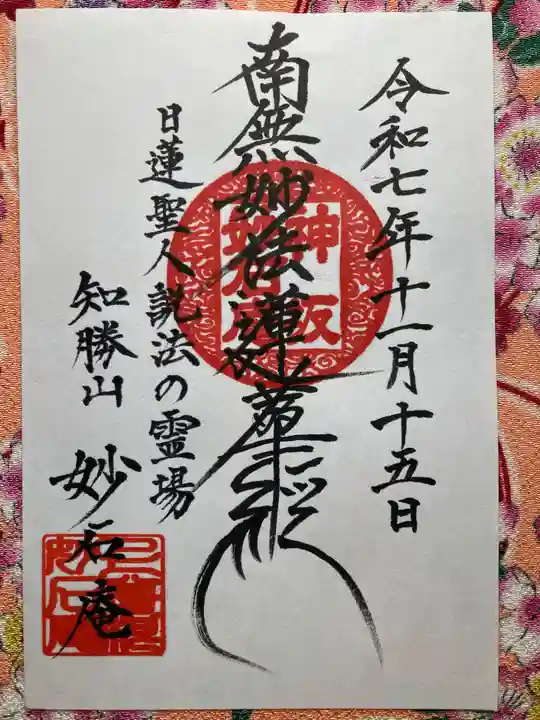 令和七年十一月十五日
南無妙法蓮華経
日蓮聖人説法の霊場
知勝山 妙石庵